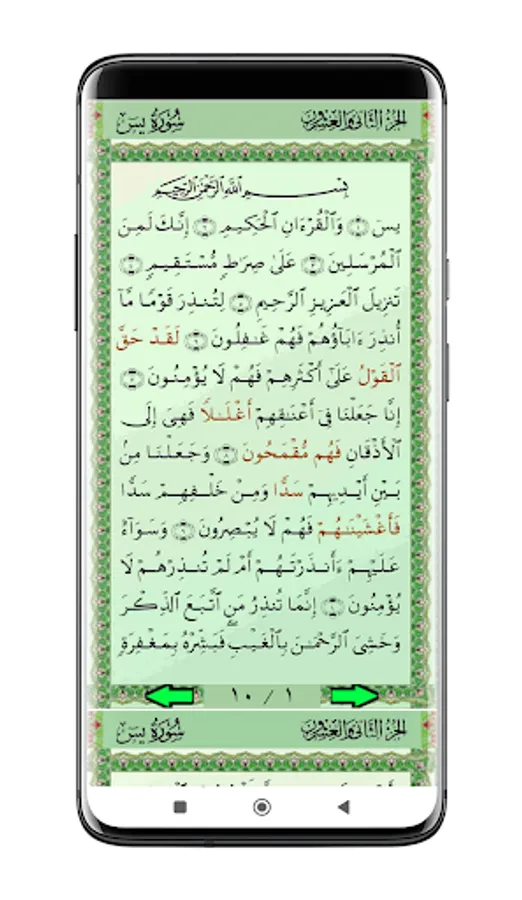 الجزء الثاني والعشرون
سُورَةُ يسٓ
بِسْمِ ٱللَّهِ ٱلرَّحْمَٰنِ ٱلرَّحِيمِ
يسٓ ١ وَٱلْقُرْءَانِ ٱلْحَكِيمِ ٢ إِنَّكَ لَمِنَ
ٱلْمُرْسَلِينَ ٣ عَلَىٰ صِرَٰطٍ مُّسْتَقِيمٍ ٤
تَنزِيلَ ٱلْعَزِيزِ ٱلرَّحِيمِ ٥ لِتُنذِرَ قَوْمًا مَّآ
أُنذِرَ ءَابَآؤُهُمْ فَهُمْ غَٰفِلُونَ ٦ لَقَدْ حَقَّ
ٱلْقَوْلُ عَلَىٰٓ أَكْثَرِهِمْ فَهُمْ لَا يُؤْمِنُونَ ٧
إِنَّا جَعَلْنَا فِىٓ أَعْنَٰقِهِمْ أَغْلَٰلًا فَهِىَ إِلَى
ٱلْأَذْقَانِ فَهُم مُّقْمَحُونَ ٨ وَجَعَلْنَا مِنۢ
بَيْنِ أَيْدِيهِمْ سَدًّا وَمِنْ خَلْفِهِمْ سَدًّا
فَأَغْشَيْنَٰهُمْ فَهُمْ لَا يُبْصِرُونَ ٩ وَسَوَآءٌ
عَلَيْهِمْ ءَأَنذَرْتَهُمْ أَمْ لَمْ تُنذِرْهُمْ لَا
يُؤْمِنُونَ ١٠ إِنَّمَا تُنذِرُ مَنِ ٱتَّبَعَ ٱلذِّكْرَ
وَخَشِىَ ٱلرَّحْمَٰنَ بِٱلْغَيْبِ ۖ فَبَشِّرْهُ بِمَغْفِرَةٍ
١ / ١٠
الجزء الثاني والعشرون
سُورَةُ يسٓ